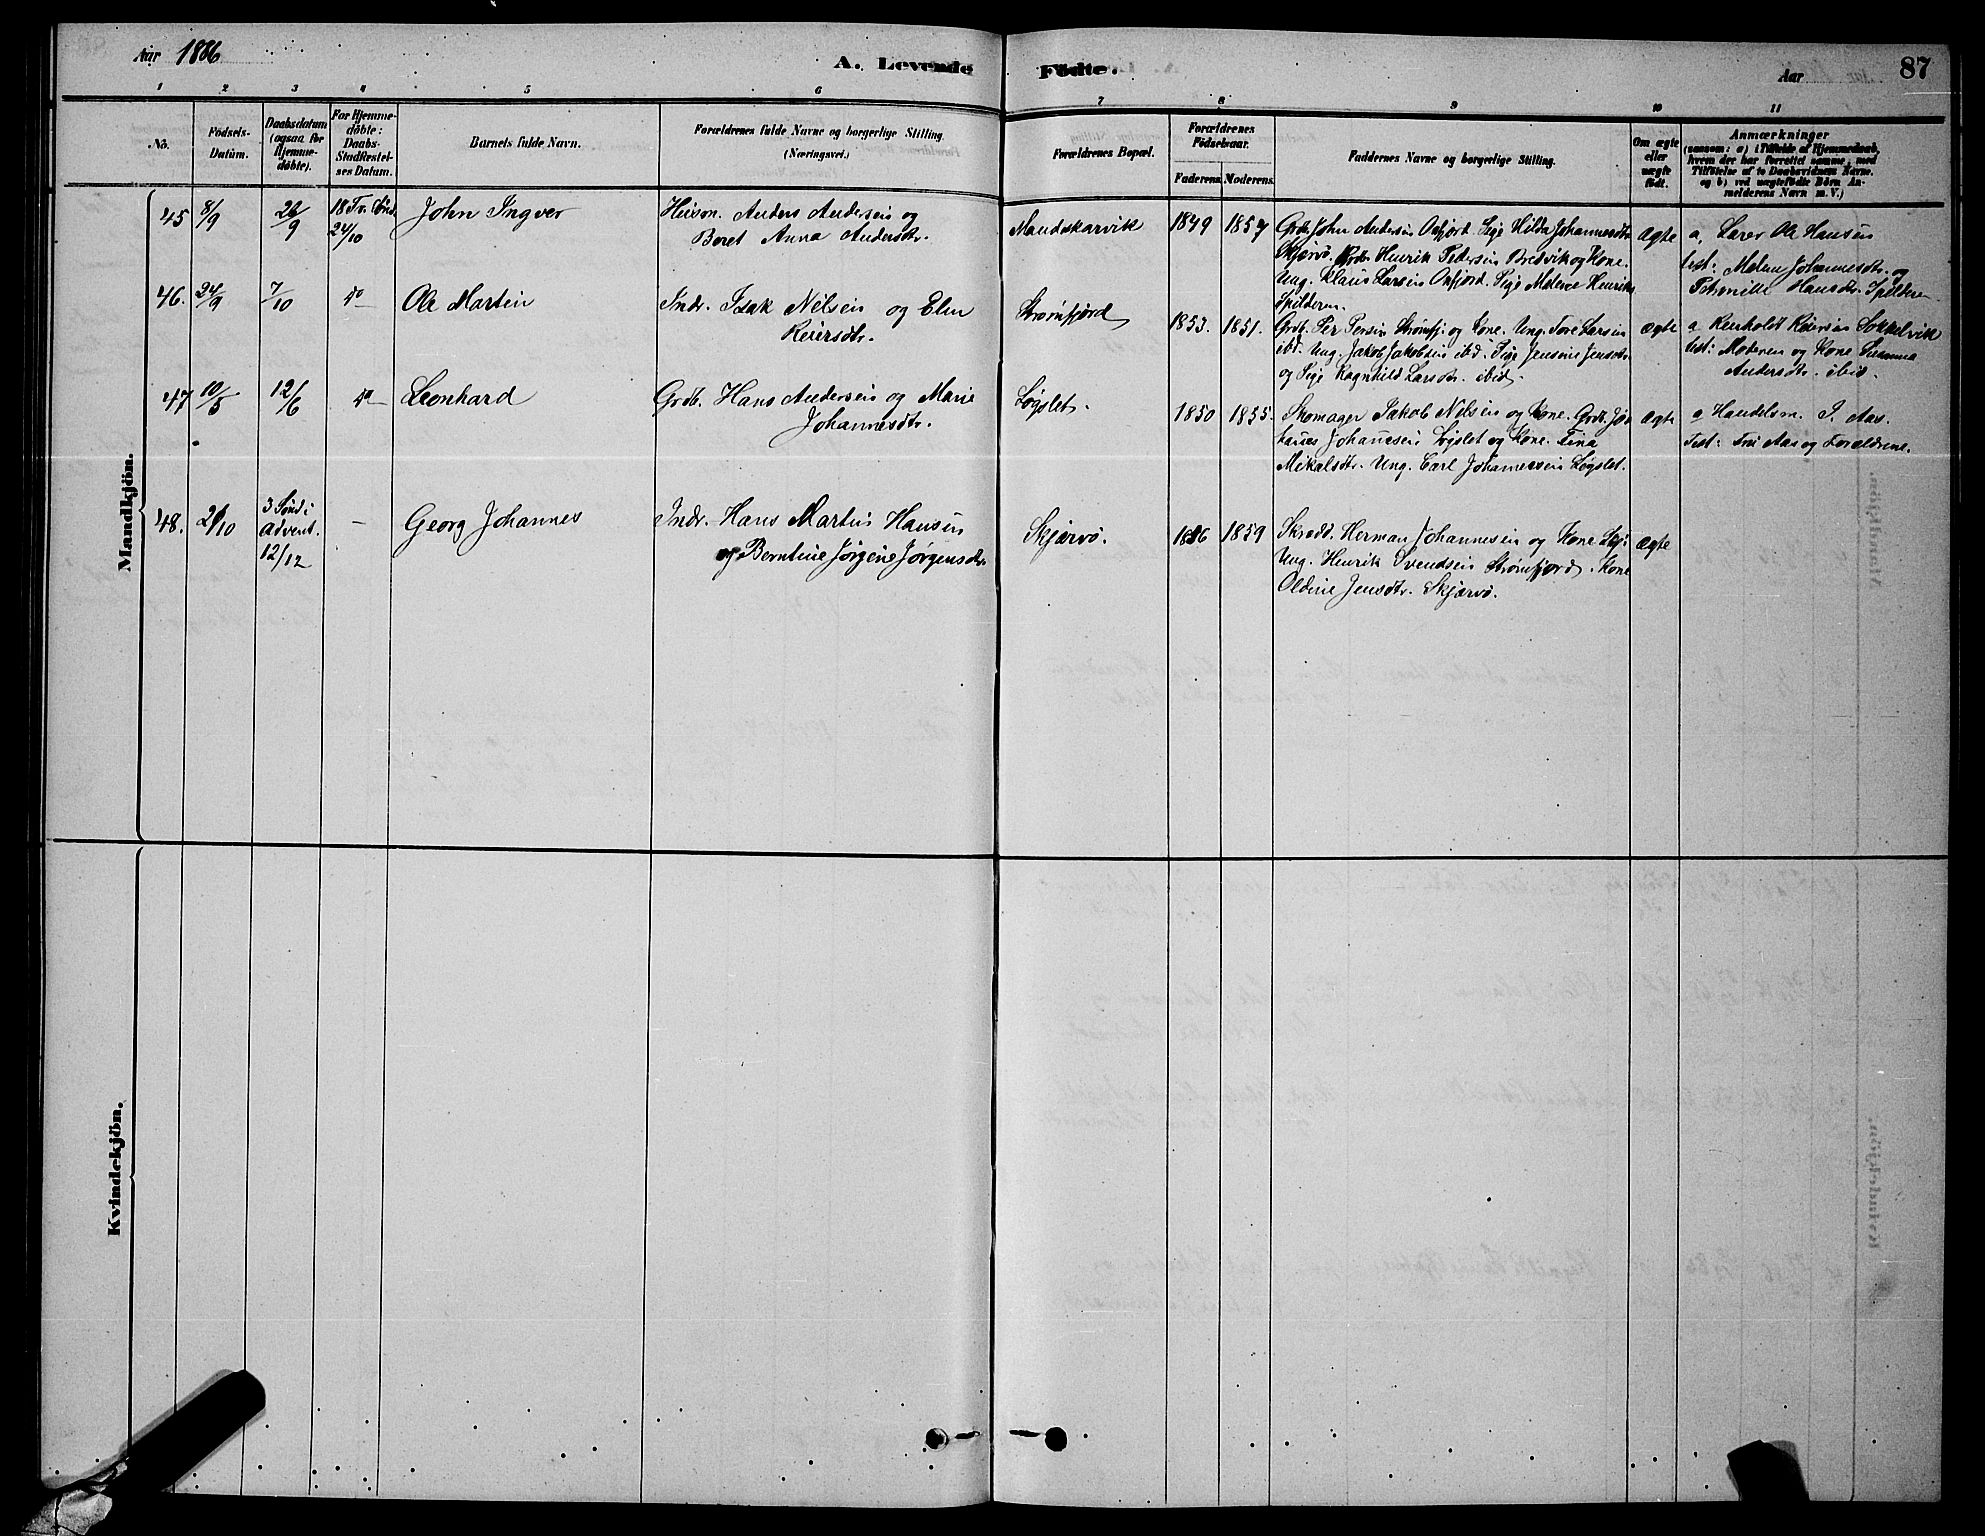 Aar 1886
A. Levende Födte.
Aar
87
1 2 3 4 5 6 7 8 9 10 11
No.
Födsels-
Datum.
Daabsdatum
(ogsaa for
Hjemme-
döbte).
For Hjemme-
döbte:
Daabs-
Stadfæstel-
ses Datum.
Barnets fulde Navn.
Forældrenes fulde Navne og borgerlige Stilling.
(Næringsvei.)
Forældrenes Bopæl.
Forældrenes
Födselsaar.
Faderens. Moderens.
Faddernes Navne og borgerlige Stilling.
Om ægte
eller
uægte
födt.
Anmærkninger
(saasom: a) i Tilfælde af Hjemmedaab,
hvem der har forrettet samme, med
Tilföielse af to Daabsvidners Navne.
og b) ved uægtefödte Börn An-
melderens Navn m. V.)
Mandkjön.
45 8/9 26/9 18 Tr. Sönd. 24/10
John Ingver
Anders Andersen og
Beret Anna Andersdtr.
Mandskarvik
1849 1857
Grdb. John Andersen Oxfjord. Pige Hilda Johannesdtr
Skjærvö. Grdb. Henrik Pedersen Bredvik og Kone.
Ung. Klaus Larsen Oxfjord. Pige Henriks
Spilderen.
ægte
a, Lærer Ole Hansen
test: Johannesdtr. og
Hansdtr. Spilderen
46. 24/9 7/10 do
Ole Martin
Indr. Isak Nilsen og Elen
Reiersdtr.
Strömfjord
1853. 1851.
Grdb. Per Persen Strömfj. og Kone. Ung. Tore Larsen
ibd. Ung. Jakob Jakobsen ibd. Pige Jensine Jensdtr.
og Pige Ragnhild Larsdtr. ibid.
ægte
a Renholdt Reiersen Sokkelvik
test: Moderen og Kone Susanna
Andersdtr. ibid.
47 10/5 12/6 do
Leonhard
Grdb. Hans Andersen og Marie
Johannesdtr.
Lögslet.
1850 1855.
Skomager Jakob Nilsen og Kone. Grdb. Jo-
hannes Johannesen Lögslet og Kone. Tina
Mikalsdtr. Ung. Carl Johannesen Lögslet.
ægte
a Handelsm. J. Aas.
Test: Fru Aas og Forældrene.
48. 21/10
3 Sönd i
Advent.
12/12
-
Georg Johannes
Indr. Hans Martin Hansen
og Berntine Jörgine Jörgensdtr.
Skjærvö.
1856 1859
Skrædd. Herman Johannesen og Kone Skj:
Ung. Henrik Svendsen Strömfjord. Kone
Oldine Jensdtr. Skjærvö.
ægte
Kvindekjön.